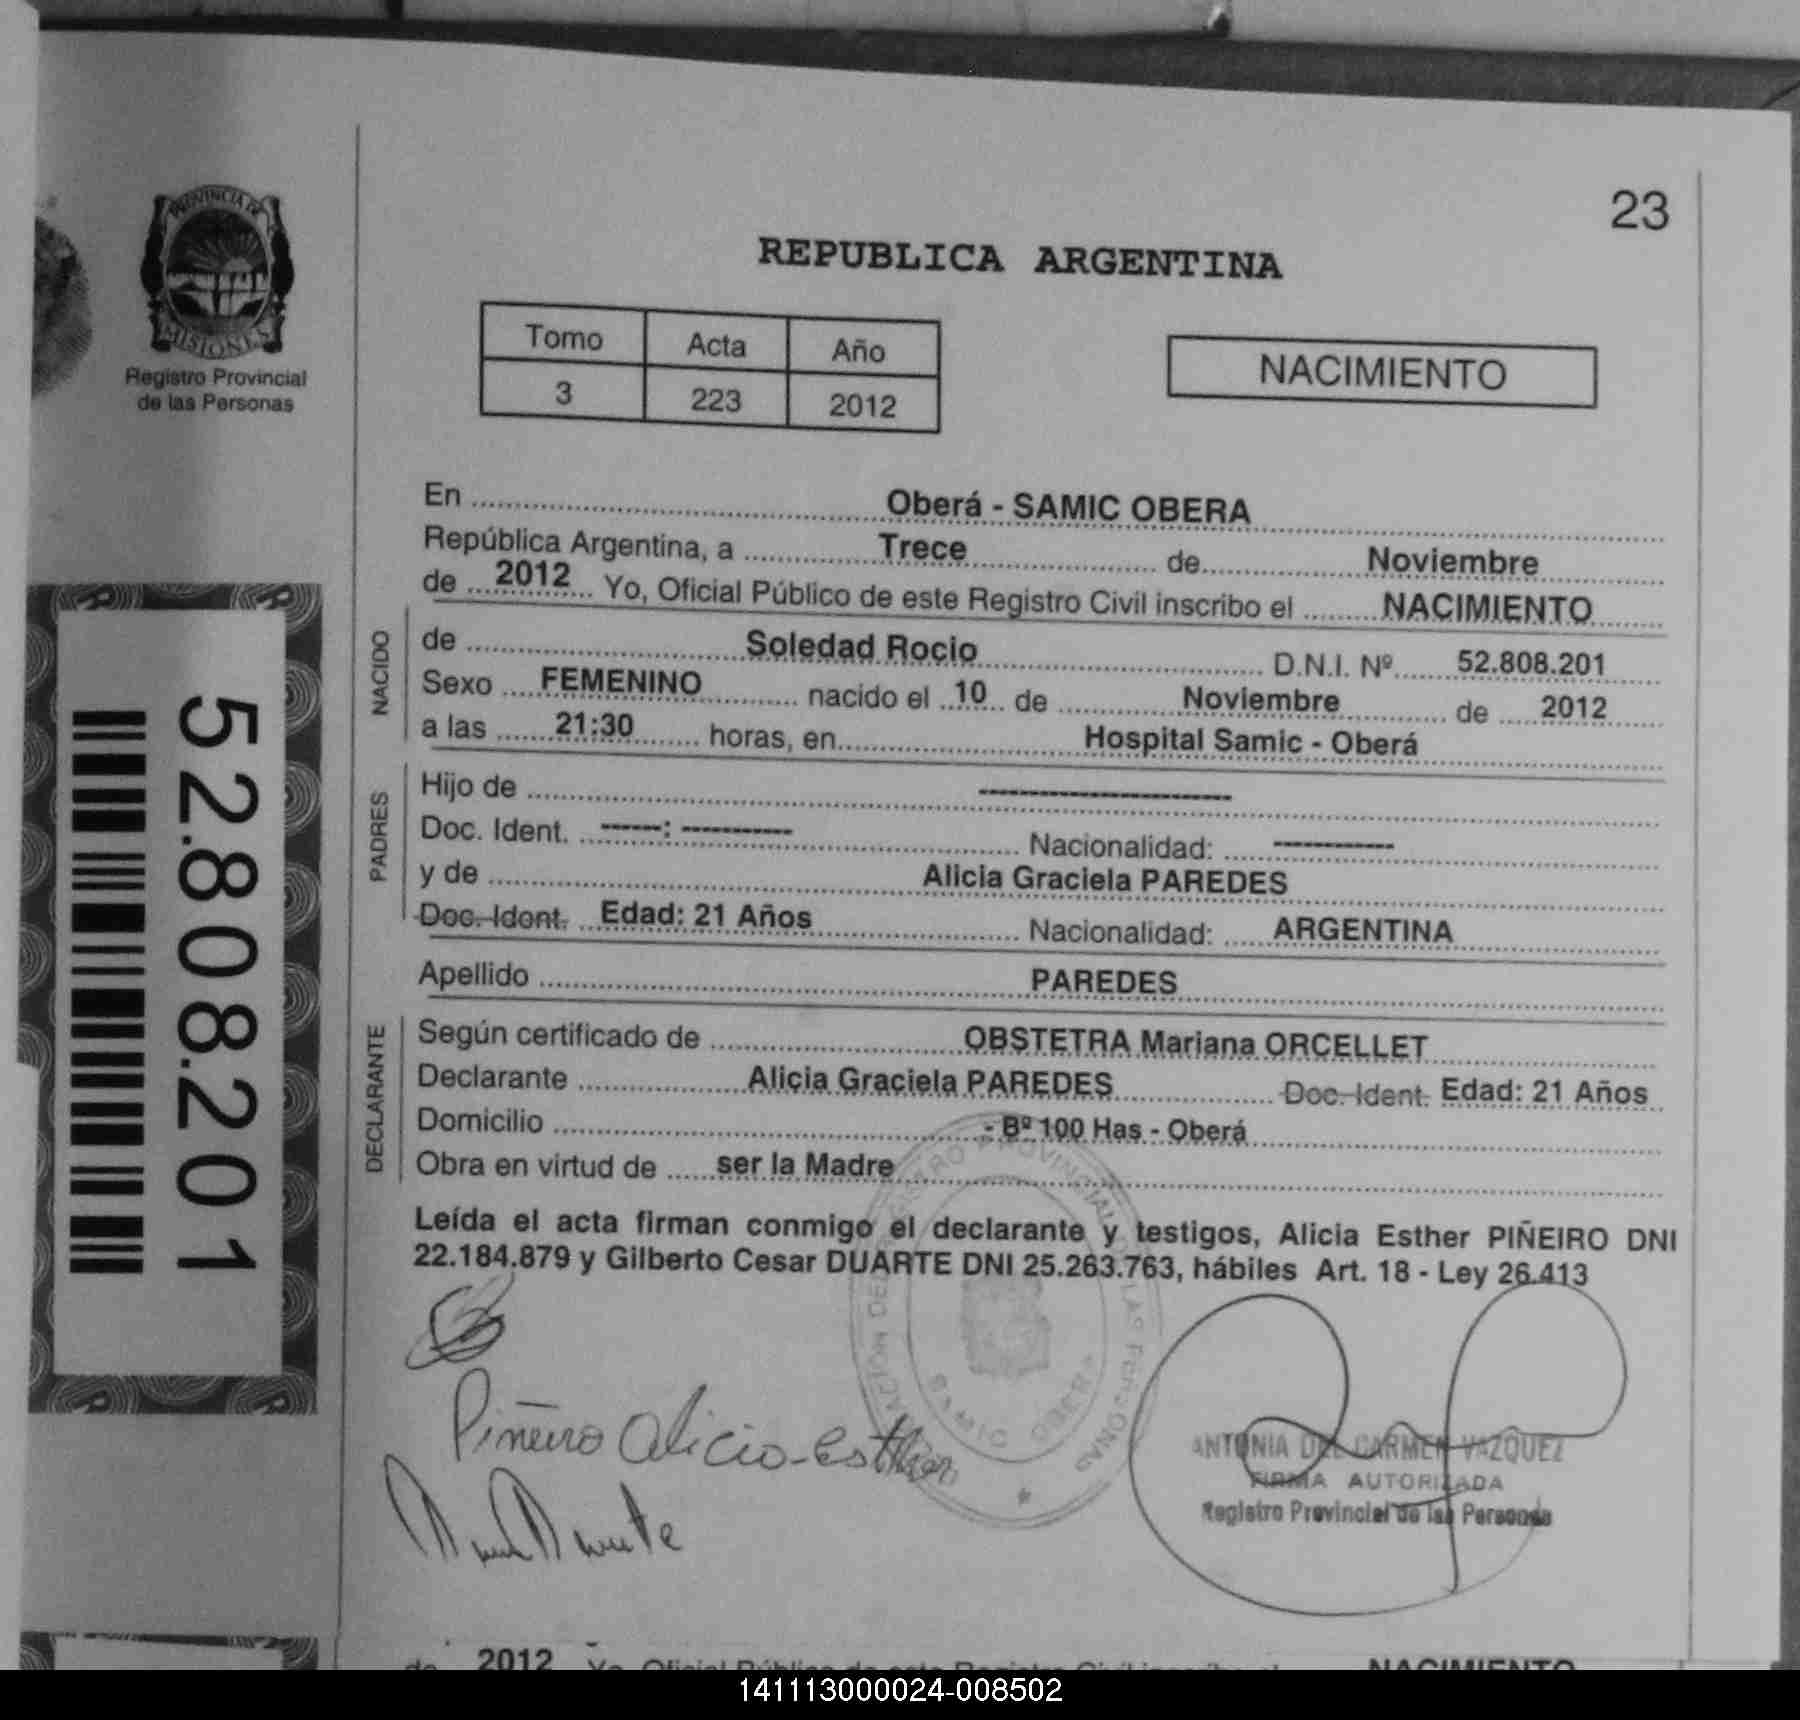 23
PROVINCIA DE
MISIONES
Registro Provincial
de las Personas
REPUBLICA ARGENTINA
Tomo Acta Año
3 223 2012
NACIMIENTO
En Oberá - SAMIC OBERA
República Argentina, a Trece de Noviembre
de 2012 Yo, Oficial Público de este Registro Civil inscribo el NACIMIENTO
NACIDO
de Soledad Rocio D.N.I. Nº 52.808.201
Sexo FEMENINO nacido el 10 de Noviembre de 2012
a las 21:30 horas, en Hospital Samic - Oberá
PADRES
Hijo de ----------------------
Doc. Ident. ------: ----------- Nacionalidad: ------------
y de Alicia Graciela PAREDES
Doc. Ident. Edad: 21 Años Nacionalidad: ARGENTINA
Apellido PAREDES
DECLARANTE
Según certificado de OBSTETRA Mariana ORCELLET
Declarante Alicia Graciela PAREDES Doc. Ident. Edad: 21 Años
Domicilio - Bº 100 Has - Oberá
Obra en virtud de ser la Madre
Leída el acta firman conmigo el declarante y testigos, Alicia Esther PIÑEIRO DNI
22.184.879 y Gilberto Cesar DUARTE DNI 25.263.763, hábiles Art. 18 - Ley 26.413
52.808.201
Piñeiro Alicia Esther
SAMIC OBERA
ANTONIA DEL CARMEN VAZQUEZ
FIRMA AUTORIZADA
Registro Provincial de las Personas
2012 NACIMIENTO
141113000024-008502